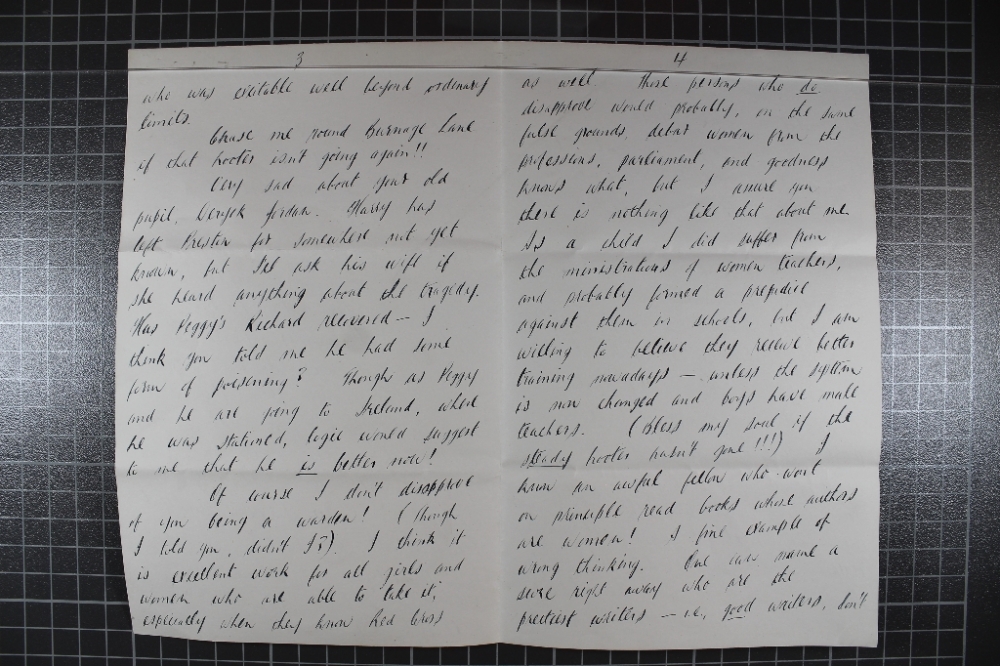 3
who was excitable well beyond ordinary
limits.
Chase me round Burnage Lane
if that hooter isn't going again!!
Very sad about your old
pupil, Jordan. Harry has
left Preston for somewhere not yet
known, but I'll ask his wife if
she heard anything about the tragedy.
Has Peggy's Richard recovered — I
think you told me he had some
form of poisoning? Though as Peggy
and he are going to Ireland, where
he was stationed, logic would suggest
to me that he is better now!
Of course I don't disapprove
of you being a warden! (Though
I told you, didn't I?). I think it
is excellent work for all girls and
women who are able to take it,
especially when they know Red Cross
4
as well. Those persons who do
disapprove would probably, on the same
false grounds, debar women from the
professions, parliament, and goodness
knows what, but I assure you
there is nothing like that about me.
As a child I did suffer from
the ministrations of women teachers,
and probably formed a prejudice
against them in schools, but I am
willing to believe they receive better
training nowadays — unless the system
is now changed and boys have male
teachers. (Bless my soul if the
steady hooter hasn't gone!!!) I
know an awful fellow who won't
on principle read books whose authors
are women! A fine example of
wrong thinking. One can name a
score right away who are the
prettiest writers — i.e, good writers, don't